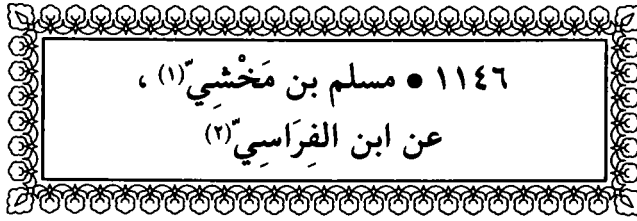 ١١٤٦ ● مسلم بن مَخْشِيّ(١) ،
عن ابن الفِرَاسِيّ(٢)